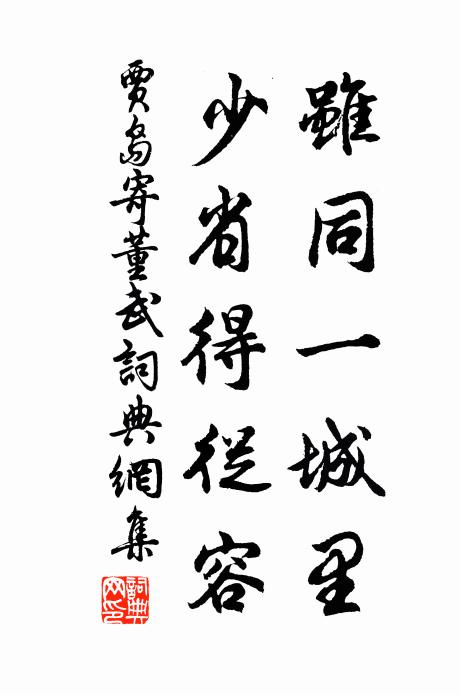 雖同一城里
少省得從容
賈島寄董武詞典網集
詞典网印